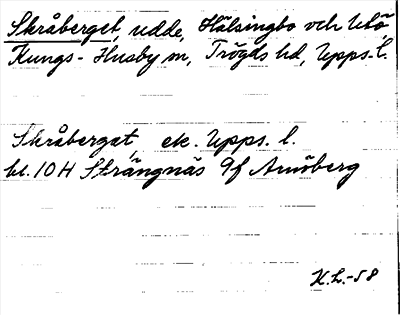 Skråberget, udde, Hälsingbo och Utö,
Kungs-Husby sn, Trögds hd, Upps. l.
Skråberget, ek. Upps. l.
bl. 10 H Strängnäs 9f Arnöberg
K.L.-58